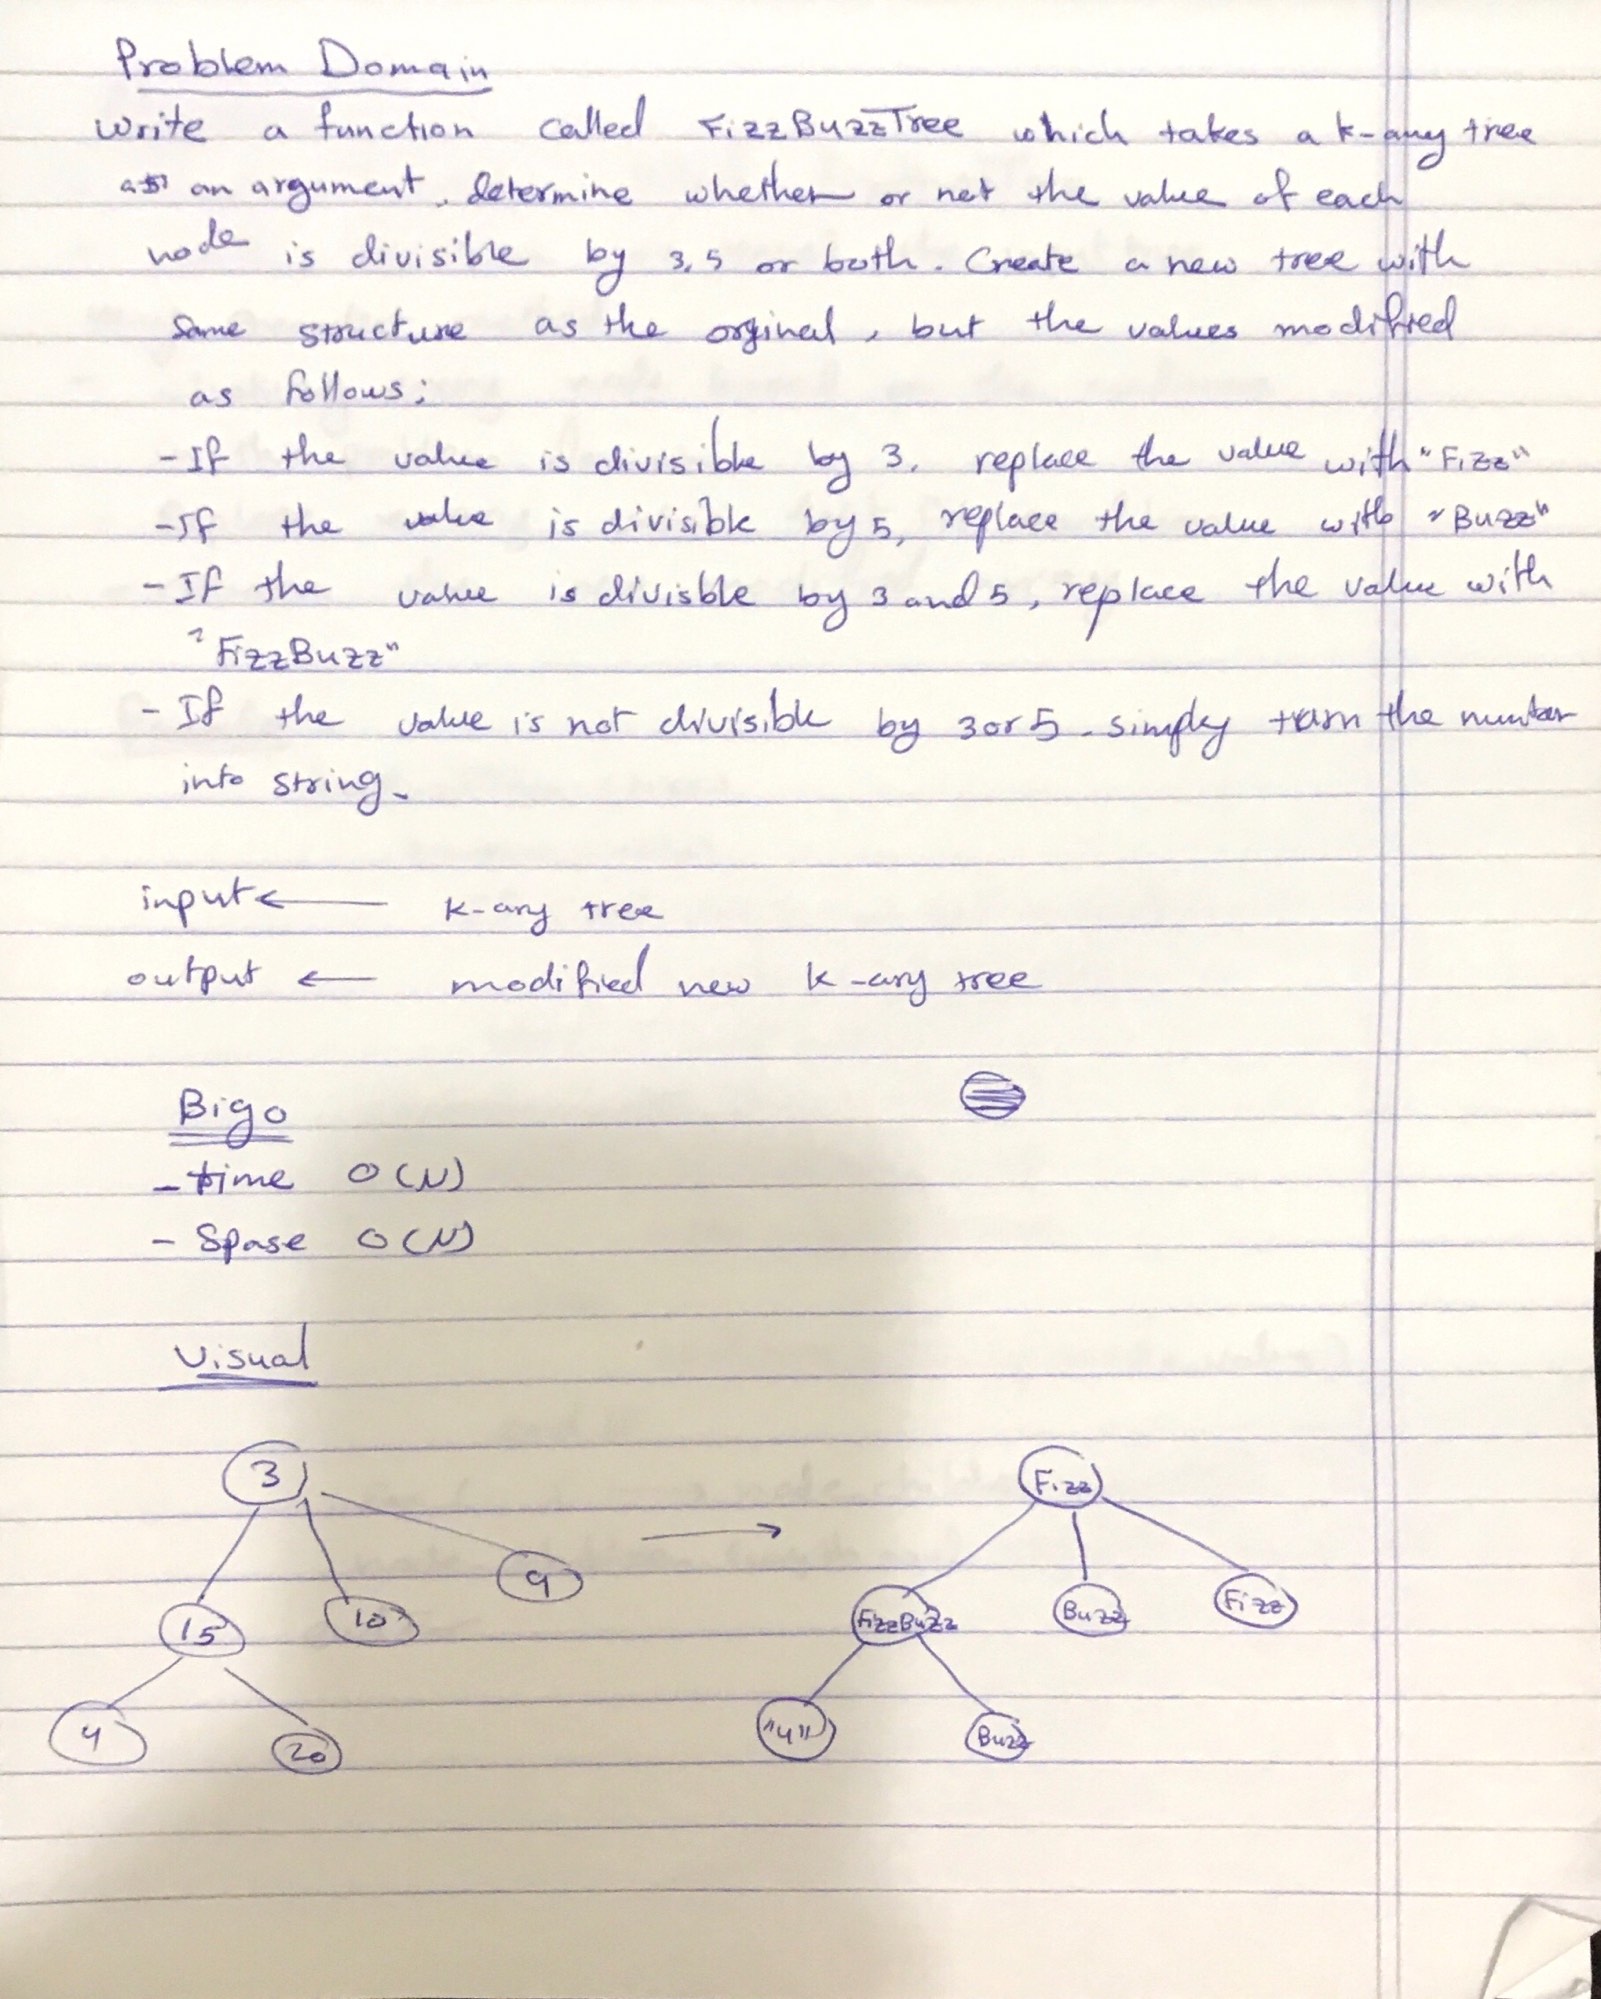 Problem Domain
write a function called FizzBuzzTree which takes a k-any tree
as an argument. determine whether or not the value of each
node is divisible by 3,5 or both. Create a new tree with
same structure as the orginal, but the values modified
as follows:
- If the value is divisible by 3, replace the value with "Fizz"
- If the value is divisible by 5, replace the value with "Buzz"
- If the value is divisble by 3 and 5, replace the value with
"FizzBuzz"
- If the value is not divisible by 3 or 5. simply turn the number
into string.
input ← k-ary tree
output ← modified new k-ary tree
Bigo
- time O(N)
- Spase O(N)
Visual
3 Fizz
→
15 10 9 FizzBuzz Buzz Fizz
4 20 "4" Buzz